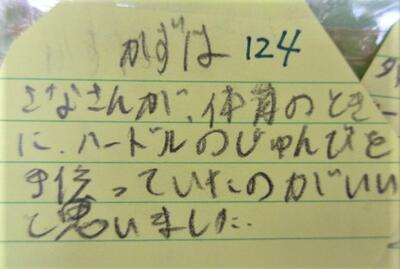 かずは 124
さなさんが、体育のとき
に、ハードルのじゅんびを
手伝っていたのがいい
と思いました。